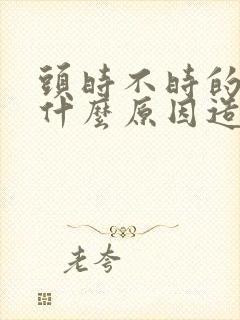 頭時不時的
什麼原因造
老夸